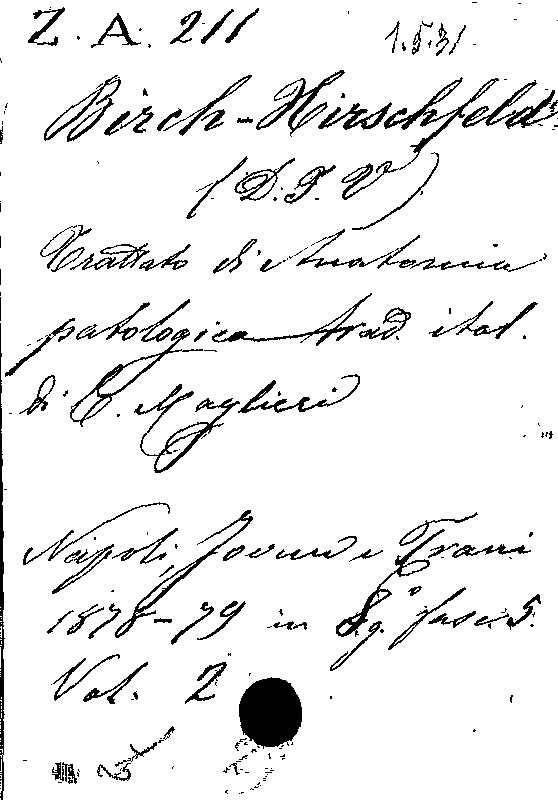 Z. A. 211
1.5.31
Birch-Hirschfeld
(D.F.V)
Trattato di Anatomia
patologica trad. ital.
di C. Maglieri
Napoli, Jovene e Trani
1878-79 in 8.° g. fasc. 5.
Vol. 2